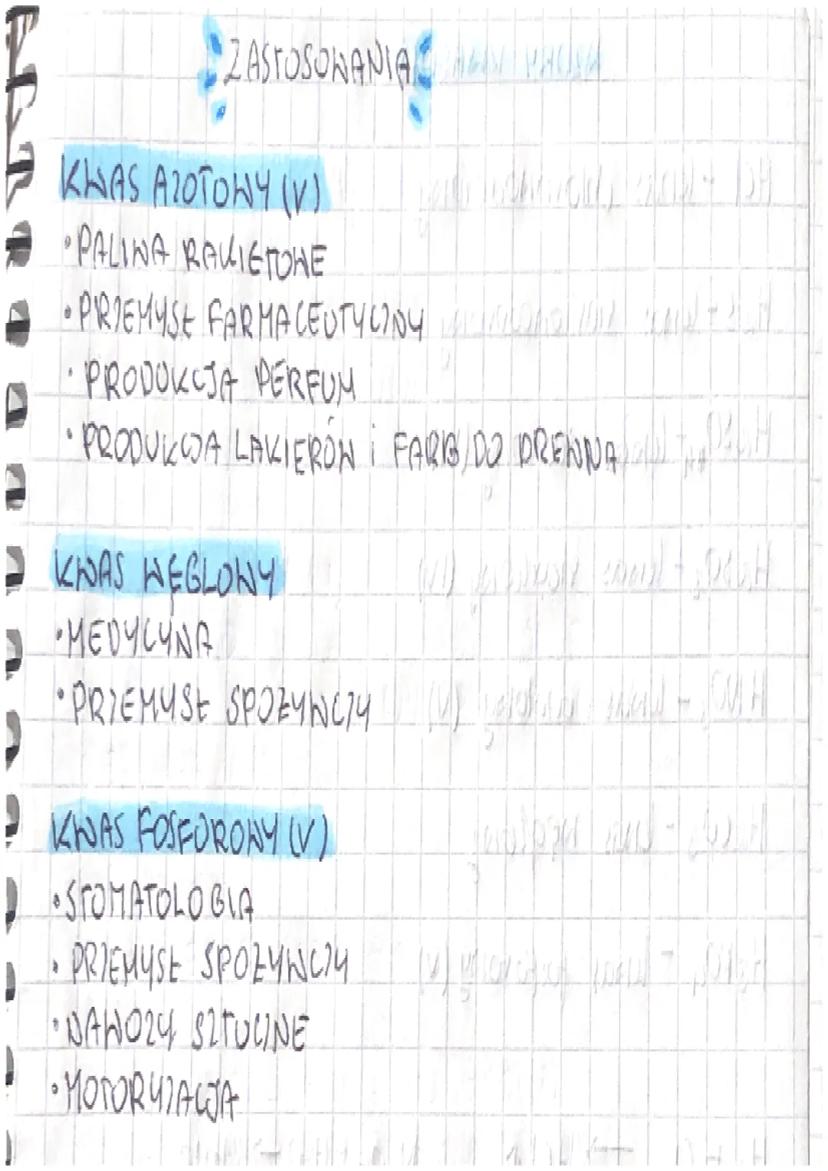 ZASTOSOWANIA
KWAS AZOTOWY (V)
• PALIWA RAKIETOWE
• PRZEMYSŁ FARMACEUTYCZNY
• PRODUKCJA PERFUM
• PRODUKCJA LAKIERÓW i FARB DO DREWNA
KWAS WĘGLOWY
• MEDYCYNA
• PRZEMYSŁ SPOŻYWCZY
KWAS FOSFOROWY (V)
• STOMATOLOGIA
• PRZEMYSŁ SPOŻYWCZY
• NAWOZY SZTUCZNE
• MOTORYZACJA